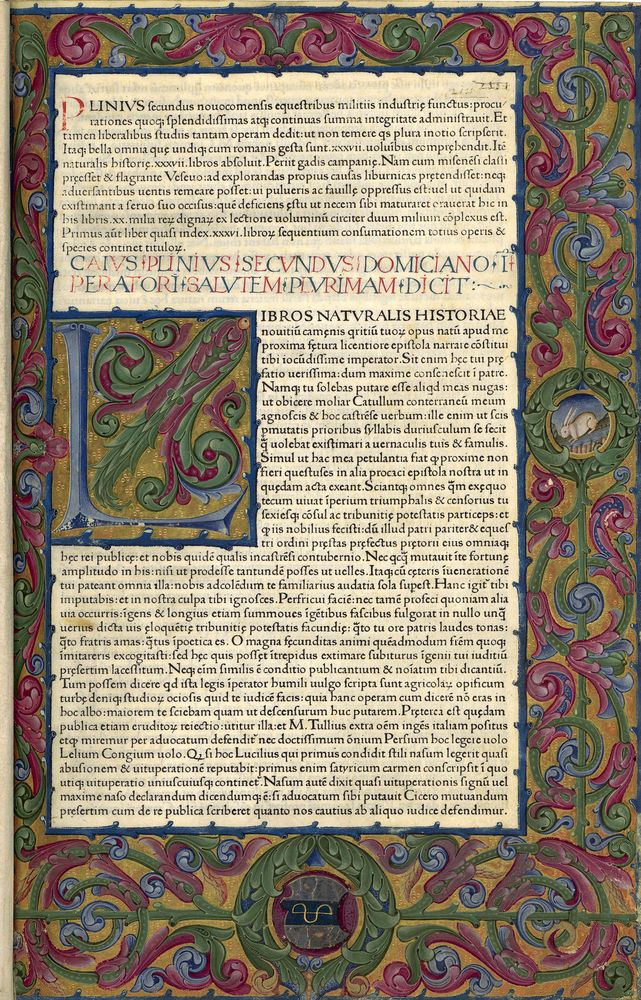 PLINIVS secundus nouocomensis equestribus militiis industrię functus: procu/
rationes quoq; splendidissimas atq; continuas summa integritate administrauit. Et
tamen liberalibus studiis tantam operam dedit: ut non temere qs plura inotio scripserit.
Itaq; bella omnia quę undiq; cum romanis gesta sunt .xxxvii. uoluibus compręhendit. Itē
naturalis historię .xxxvii. libros absoluit. Periit gadis campanię. Nam cum misenēsi classi
pręesset & flagrante Veseuo: ad explorandas propius causas liburnicas prętendisset: neq;
aduersantibus uentis remeare posset: ui pulueris ac fauillę oppressus est: uel ut quidam
existimant a seruo suo occisus: quē deficiens ęstu ut necem sibi maturaret orauerat hic in
his libris .xx. milia reꝝ dignaꝝ ex lectione uoluminū circiter duum milium cōplexus est.
Primus aūt liber quasi index .xxxvi. libroꝝ sequentium consumationem totius operis &
species continet tituloꝝ.
CAIVS PLINIVS SECVNDVS DOMICIANO I
PERATORI SALVTEM PLVRIMAM DICIT:
LIBROS NATVRALIS HISTORIAE
nouitiū camęnis qritiū tuoꝝ opus natū apud me
proxima fętura licentiore epistola narrare cōstitui
tibi iocūdissime imperator. Sit enim hęc tui prę
fatio uerissima: dum maxime consenescit ī patre.
Namq; tu solebas putare esse aliqd meas nugas:
ut obicere moliar Catullum conterraneū meum
agnoscis & hoc castrēse uerbum: ille enim ut scis
pmutatis prioribus syllabis duriusculum se fecit
q̄ uolebat existimari a uernaculis tuis & famulis.
Simul ut hac mea petulantia fiat qđ proxime non
fieri questus es in alia procaci epistola nostra ut in
quędam acta exeant. Sciantq; omnes q̄m exęquo
tecum uiuat īperium triumphalis & censorius tu
sexiesq; cōsul ac tribunitię potestatis particeps: et
q iis nobilius fecisti: dū illud patri pariter & eques
tri ordini pręstas pręfectus pretorii eius omniaq;
hęc rei publicę: et nobis quidē qualis incastrēsi contubernio. Nec qcq̄ mutauit ī te fortunę
amplitudo in his: nisi ut prodesse tantundē posses ut uelles. Itaq; cū cęteris ī uenerationē
tui pateant omnia illa: nobis ad colēdum te familiarius audatia sola supest. Hanc igit̄ tibi
imputabis: et in nostra culpa tibi ignosces. Perfricui faciē: nec tamē profeci quoniam alia
uia occurris: īgens & longius etiam summoues īgētibus fascibus fulgorat in nullo unq̄
uerius dicta uis eloquētię tribunitię potestatis facundię: q̄to tu ore patris laudes tonas:
q̄to fratris amas: q̄tus ī poetica es. O magna fęcunditas animi quēadmodum fīem quoq;
imitareris excogitasti: sed hęc quis posset ītrepidus extimare subiturus īgenii tui iuditiū
pręsertim lacessitum. Neq; eīm similis ē conditio publicantium & noīatim tibi dicantiū.
Tum possem dicere qd ista legis īperator humili uulgo scripta sunt agricolaꝝ opificum
turbę deniq; studioꝝ ociosis quid te iudicē facis: quia hanc operam cum dicerē nō eras in
hoc albo: maiorem te sciebam quam ut descensurum huc putarem. Pręterea est quędam
publica etiam eruditoꝝ reiectio: utitur illa: et M. Tullius extra oēm ingēs italiam positus
et qđ miremur per aduocatum defendit̄ nec doctissimum ōnium Persium hoc legere uolo
Lelium Congium uolo. Qꝫ si hoc Lucilius qui primus condidit stili nasum legerit quasi
abusionem & uituperationē reputabit: primus enim satyricum carmen conscripsit ī quo
utiq; uituperatio uniuscuiusq; continet̄. Nasum autē dixit quasi uituperationis signū uel
maxime naso declarandum dicendumq; ē: si aduocatum sibi putauit Cicero mutuandum
pręsertim cum de re publica scriberet quanto nos cautius ab aliquo iudice defendimur.